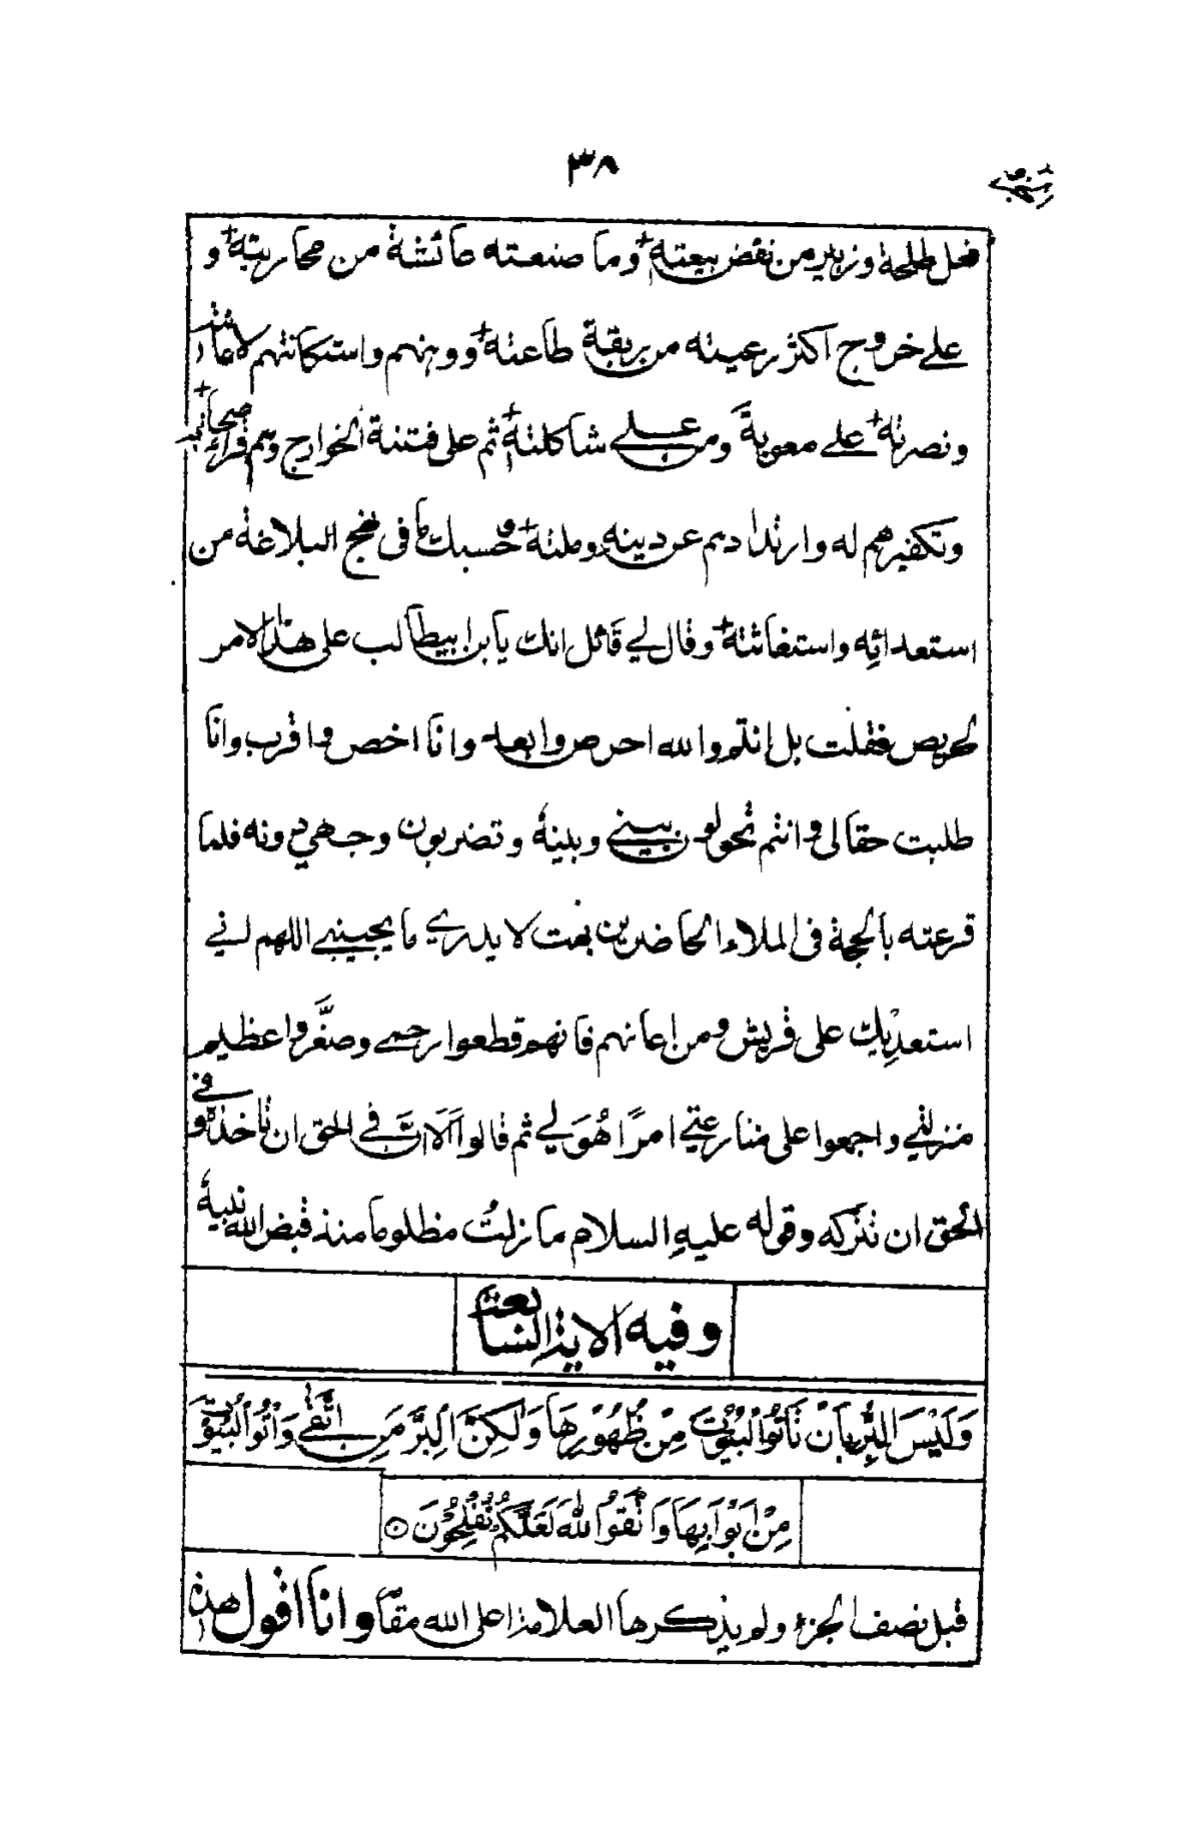 ٣٨
فعل طلحة وزبير من نقض بيعته وما صنعته عائشة من محاربته و
على خروج اكثر رعيته من ربقة طاعته ووهنهم واستكانتهم لاعانته
ونصرته على معوية ومن على شاكلته ثم على فتنة الخوارج وهم قراء صحابته
وتكفيرهم له وارتدادهم عن دينه وملته وحسبك ما فى نهج البلاغة من
استعدائه واستغاثته وقال لي قائل انك يا بن ابيطالب على هذا الامر
لحريص فقلت بل انتم والله احرص وابعد وانا اخص واقرب وانا
طلبت حقا لى وانتم تحولون بيني وبينه وتضربون وجهي دونه فلما
قرعته بالحجة فى الملاء الحاضرين بهت لا يدري ما يجيبني اللهم اني
استعديك على قريش ومن اعانهم فانهم قطعوا رحمي وصغّروا عظيم
منزلتي واجمعوا على منازعتي امرًا هُوَ لي ثم قالوا اَلَا انَّ في الحق ان تاخذه وفي
الحق ان تتركه وقوله عليهِ السلام ما زلتُ مظلوما منذ قبض الله نبيه
وفيه الاية السابعة
وَلَيْسَ الْبِرُّ بِاَنْ تَاْتُوا الْبُيُوْتَ مِنْ ظُهُوْرِهَا وَلٰكِنَّ الْبِرَّ مَنِ اتَّقٰى وَاْتُوا الْبُيُوْتَ
مِنْ اَبْوَابِهَا وَاتَّقُوا اللهَ لَعَلَّكُمْ تُفْلِحُوْنَ
قبل نصف الجزء ولم يذكرها العلامة اعلى الله مقامه وانا اقول هذه